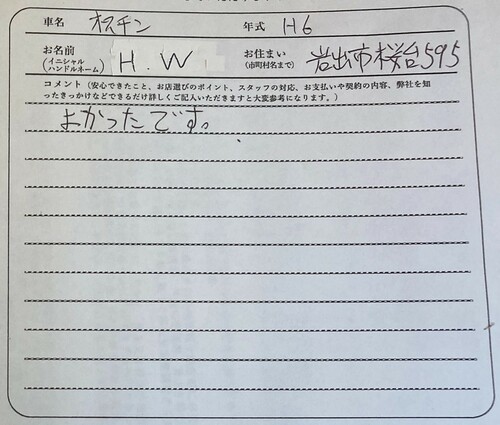 車名 オースチン 年式 H6
お名前 (イニシャル ハンドルネーム) H.W お住まい (市町村名まで) 岩出市桜台595
コメント（安心できたこと、お店選びのポイント、スタッフの対応、お支払いや契約の内容、弊社を知
ったきっかけなどできるだけ詳しくご記入いただきますと大変参考になります。）
よかったです。